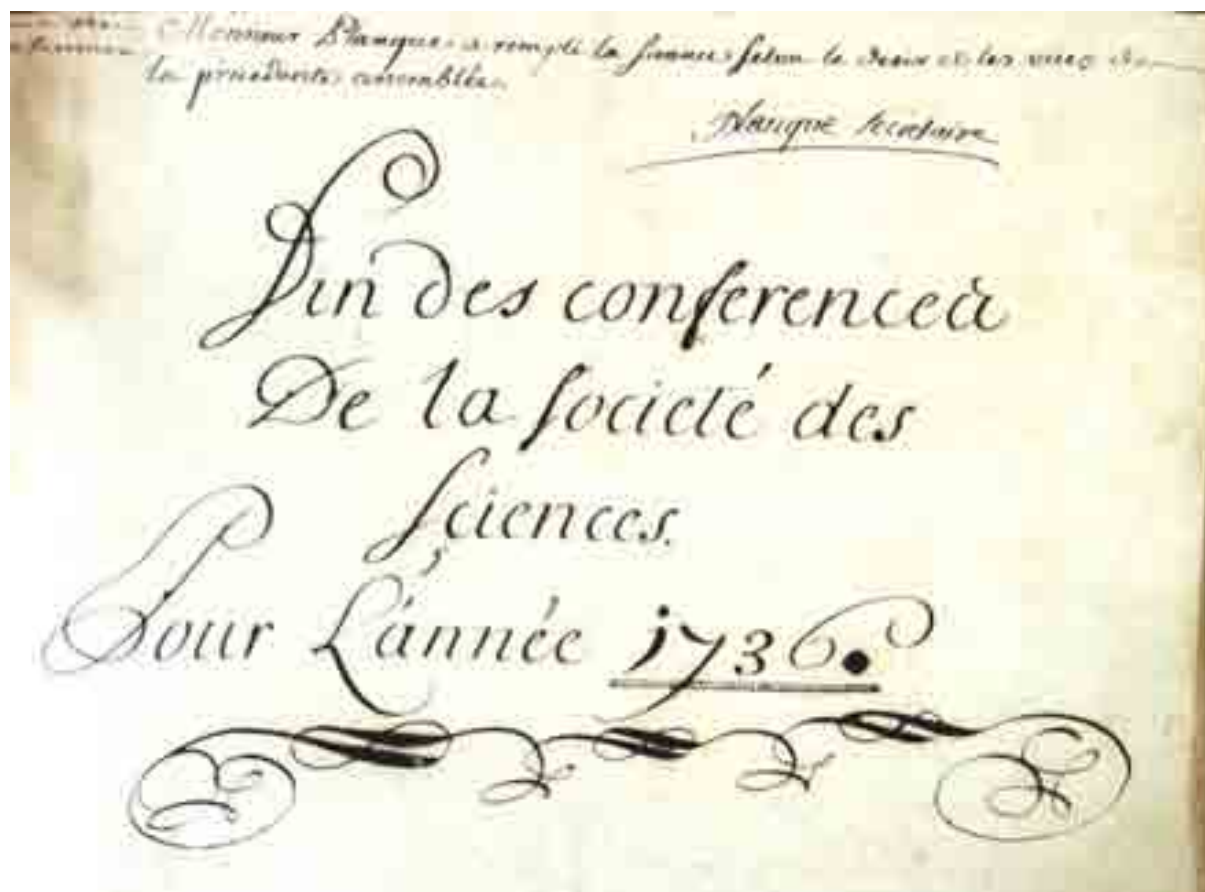 Monsieur Planque a rempli la seance selon le desir et les vues de
la precedente assemblée.
Planque secretaire
Fin des conferences
De la societé des
sciences.
Pour L'année 1736.